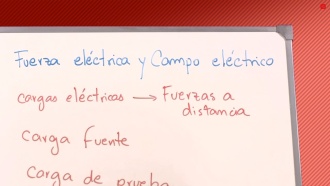 Fuerza eléctrica y Campo eléctrico
cargas eléctricas → Fuerzas a
distancia
Carga fuente
Carga de prueba